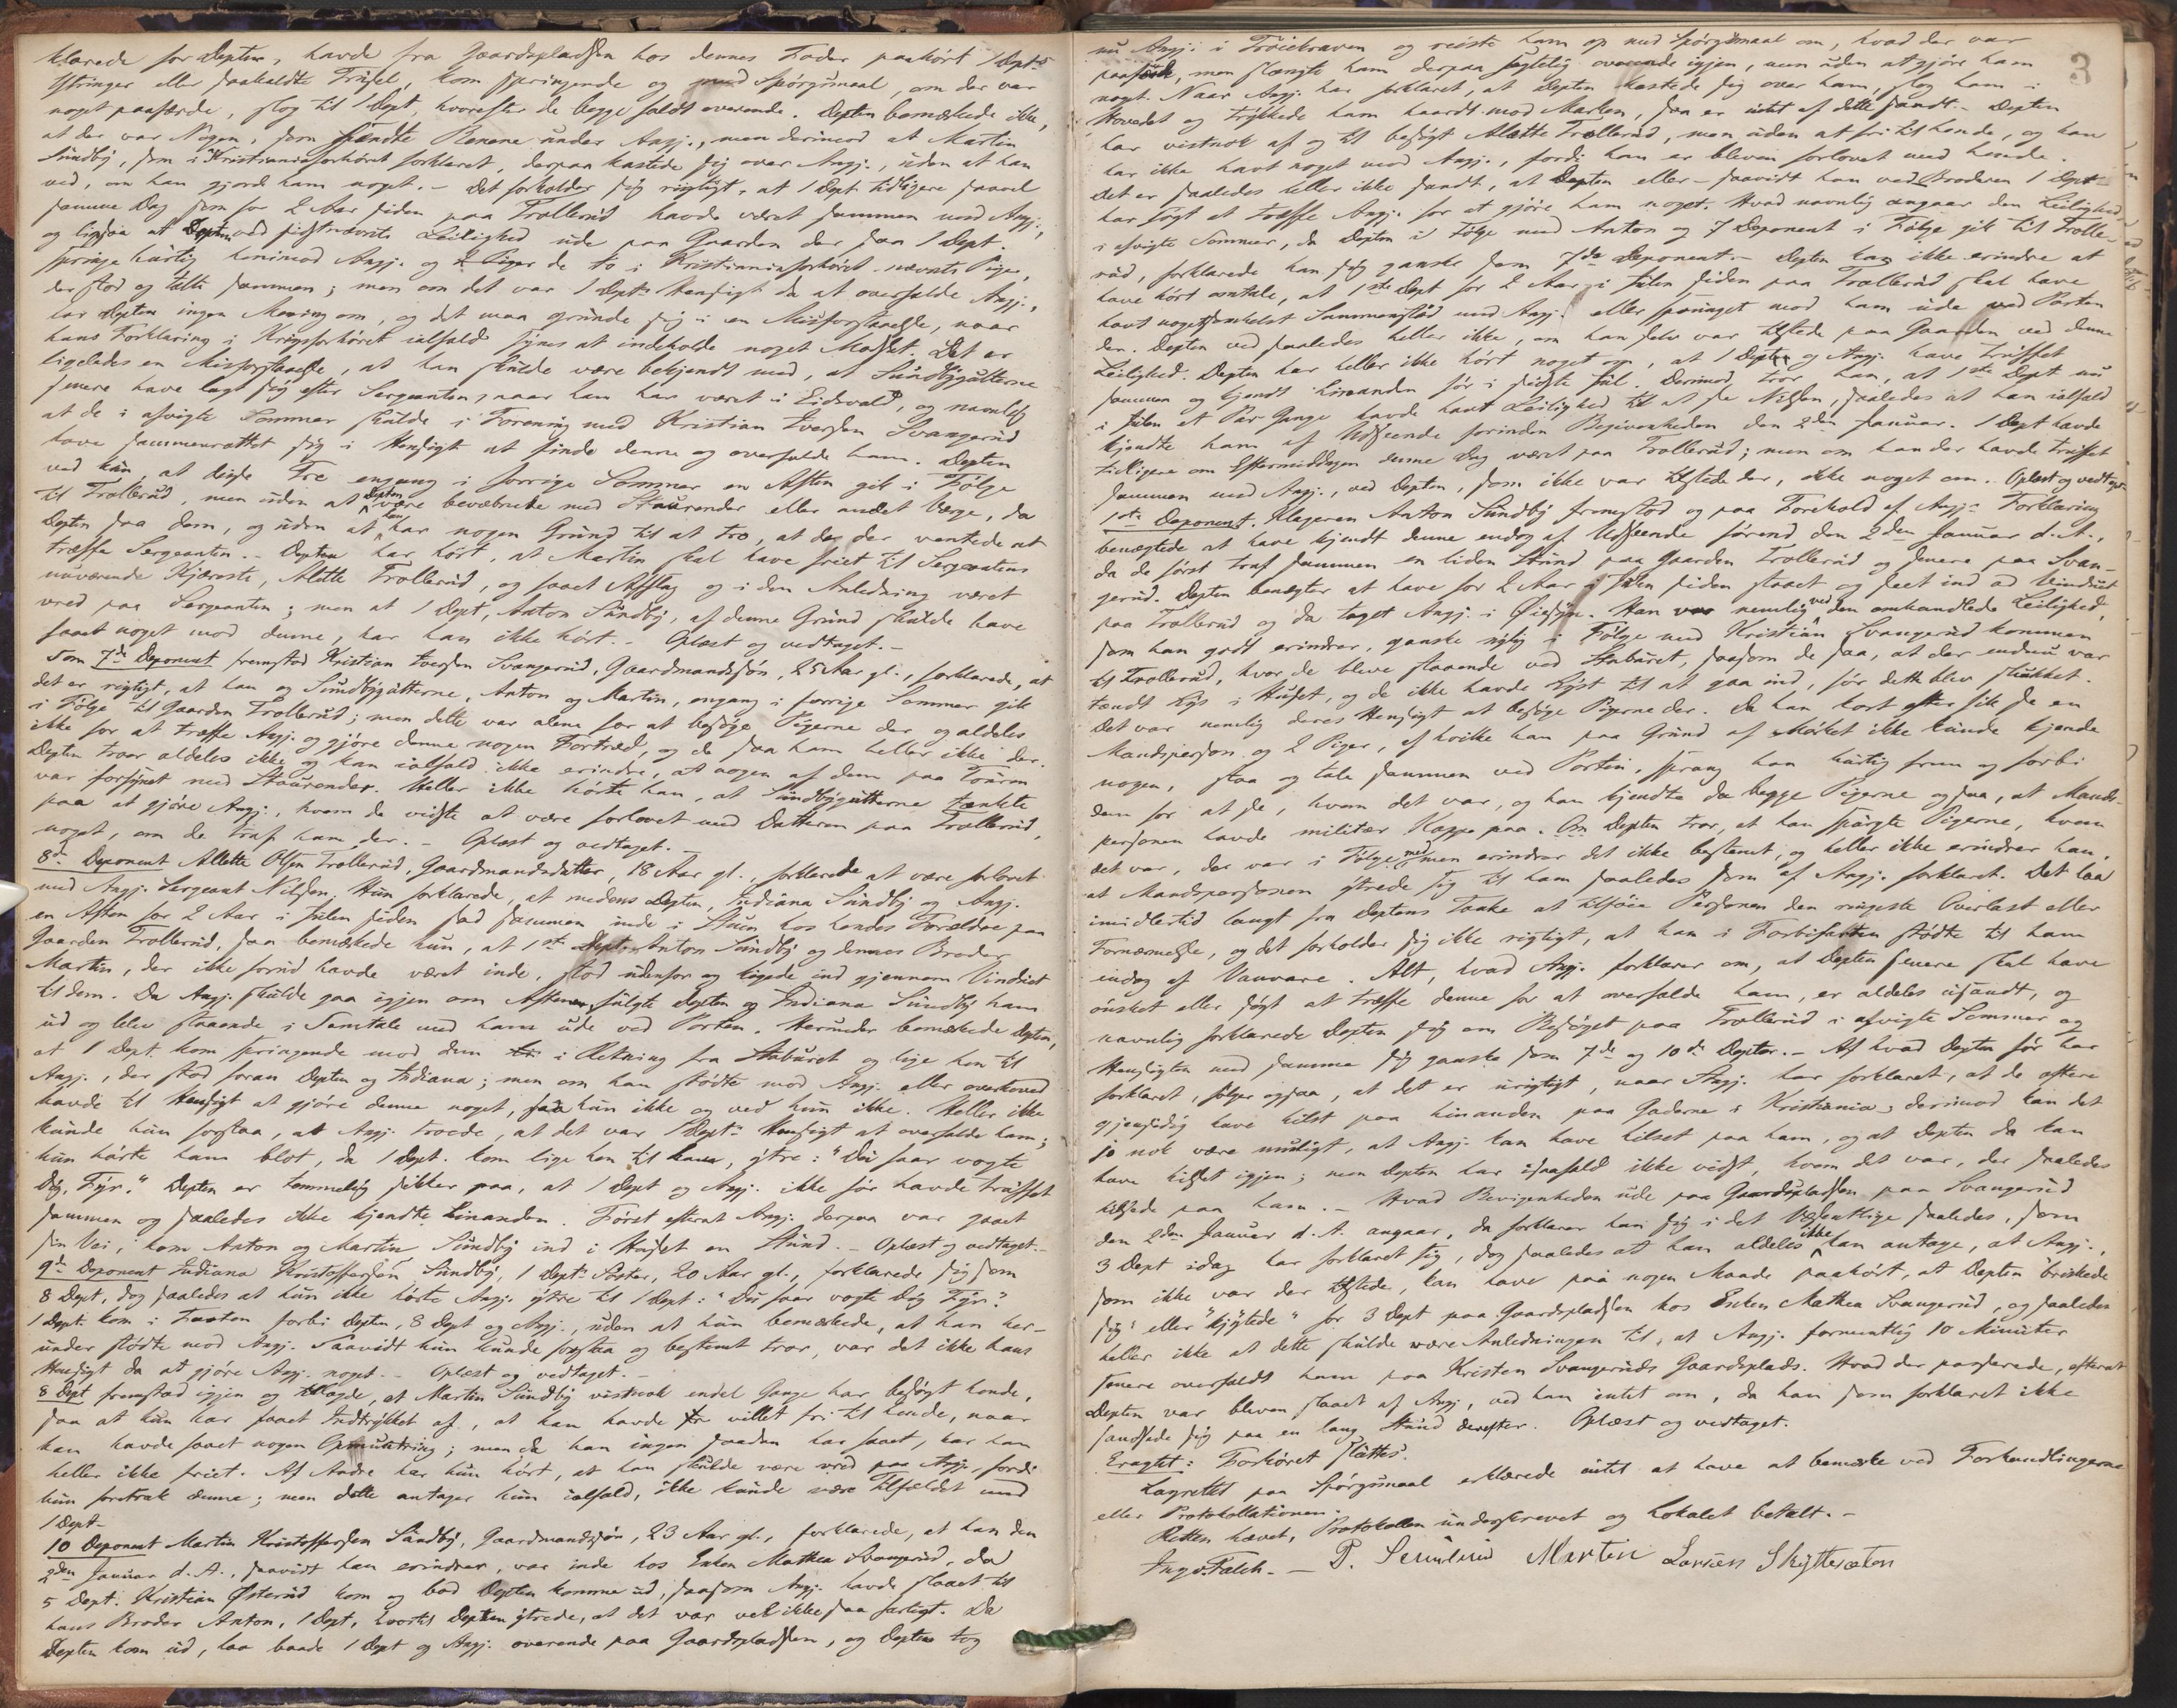 klarede for Depten, havde fra Gaardspladsen hos dennes Fader paahørt 1 Dept.s
Ytringer eller saakaldte Trusel, kom springende og med Spørgsmaal, om der var
noget paafærde, slog til 1 Dept, hvorefter de begge faldt overende. Depten bemærkede ikke,
at der var Nogen, som spændte Benene under Angj., men derimod at Martin
Sundby, som i Kristianiaforhøret forklaret, derpaa kastede sig over Angj., uden at han
ved, om han gjorde ham noget. - Det forholder sig rigtigt, at 1 Dept tidligere saavel
samme Dag som for 2 Aar siden paa Trollerud havde været sammen med Angj.,
og ligesaa at Depten ved sidstnævnte Leilighed ude paa Gaarden der saa 1 Dept.
springe hurtig henimod Angj. og de to i Kristianiaforhøret nævnte Piger,
der stod og talte sammen; men om det var 1 Depts Hensigt da at overfalde Angj.,
har Depten ingen Mening om, og det maa grunde sig i en Misforstaaelse, naar
hans Forklaring i Krigsforhøret ialfald synes at indeholde noget Modsat. Det er
ligeledes en Misforstaaelse, at han skulde være bekjendt med, at Sundbygutterne
senere have lagt sig efter Sergeanten, naar han har været i Eidsvold, og navnlig
at de i afvigte Sommer skulde i Forening med Kristian Iversen Svangerud
have sammenrottet sig i Hensigt at finde denne og overfalde ham. Depten
ved kun, at disse Tre engang i forrige Sommer en Aften gik i Følge
til Trollerud, men uden at være bevæbnede med Staurender eller andet Værge, da
Depten saa dem, og uden at Depten har nogen Grund til at tro, at de der ventede at
træffe Sergeanten. - Depten har hørt, at Martin skal have friet til Sergeantens
nuværende Kjæreste, Alette Trollerud, og faaet Afslag og i den Anledning været
vred paa Sergeanten; men at 1 Dept, Anton Sundby, af denne Grund skulde have
havt noget mod denne, har han ikke hørt. - Oplæst og vedtaget. -
Som 7de Deponent fremstod Kristian Iversen Svangerud, Gaardmandssøn, 25 Aar gl., forklarede, at
det er rigtigt, at han og Sundbygutterne, Anton og Martin, engang i forrige Sommer gik
i Følge til Gaarden Trollerud; men dette var alene for at besøge Pigerne der og aldeles
ikke for at træffe Angj. og gjøre denne nogen Fortræd, og de saa ham heller ikke der.
Depten tror aldeles ikke og kan ialfald ikke erindre, at nogen af dem paa Touren
var forsynet med Staurender. Heller ikke hørte han, at Sundbygutterne tænkte
paa at gjøre Angj., hvem de vidste at være forlovet med Datteren paa Trollerud,
noget, om de traf ham der. - Oplæst og vedtaget. -
8de Deponent Allette Olsen Trollerud, Gaardmandsdatter, 18 Aar gl., forklarede at være forlovet
med Angj. Sergeant Nilsen. Hun forklarede, at medens Depten, Indiana Sundby og Angj.
en Aften for 2 Aar i Julen siden sad sammen inde i Stuen hos hendes Forældre paa
Gaarden Trollerud, saa bemærkede hun, at 1ste Dept. Anton Sundby og dennes Broder
Martin, der ikke forud havde været inde, stod udenfor og kigede ind gjennem Vinduet
til dem. Da Angj. skulde gaa igjen om Aftenen, fulgte Depten og Indiana Sundby ham
ud og blev staaende i Samtale med ham ude ved Porten. Herunder bemærkede Depten,
at 1 Dept. kom springende mod dem i Retning fra Staburet og lige hen til
Angj., der stod foran Depten og Indiana; men om han stødte mod Angj. eller overhoved
havde til Hensigt at gjøre denne noget, saa hun ikke og ved hun ikke. Heller ikke
kunde hun forstaa, at Angj. troede, at det var 1 Depts Hensigt at overfalde ham;
hun hørte ham blot, da 1 Dept. kom lige hen til ham, ytre: "Du faar vogte
Dig, Fyr." Depten er temmelig sikker paa, at 1 Dept og Angj. ikke før havde truffet
sammen og saaledes ikke kjendte hinanden. Først efterat Angj. derpaa var gaaet
sin Vei, kom Anton og Martin Sundby ind i Huset en Stund. - Oplæst og vedtaget. -
9de Deponent Indiana Kristoffersen Sundby, 1 Depts Søster, 20 Aar gl., forklarede sig som
8 Dept, dog saaledes at hun ikke hørte Angj. ytre til 1 Dept: "Du faar vogte Dig Fyr."
1 Dept. kom i Farten forbi Depten, 8 Dept og Angj., uden at hun bemærkede, at han her-
under stødte mod Angj. Saavidt hun kunde forstaa og bestemt tror, var det ikke hans
Hensigt da at gjøre Angj. noget. - Oplæst og vedtaget. -
8 Dept fremstod igjen og tillagde, at Martin Sundby vistnok endel Gange har besøgt hende,
saa at hun har faaet Indtrykket af, at han havde villet fri til hende, naar
han havde faaet nogen Opmuntring; men da han ingen saadan har faaet, har han
heller ikke friet. Af Andre har hun hørt, at han skulde være vred paa Angj., fordi
hun foretrak denne; men dette antager hun ialfald, ikke kunde være Tilfældet med
1 Dept. -
10 Deponent Martin Kristoffersen Sundby, Gaardmandssøn, 23 Aar gl., forklarede, at han den
2den Januar d. A., saavidt han erindrer, var inde hos Enken Mathea Svangerud, da
5 Dept. Kristian Østerud kom og bad Depten komme ud, saasom Angj. havde slaaet til
hans Broder Anton, 1 Dept, hvortil Depten ytrede, at det var vel ikke saa farligt. Da
Depten kom ud, laa baade 1 Dept og Angj. overende paa Gaardspladsen, og Depten tog
3
nu Angj. i Trøiekraven og reiste ham op med Spørgsmaal om, hvad der var
paafærde, men slængte ham derpaa sagtelig overende igjen, men uden at gjøre ham
noget. Naar Angj. har forklaret, at Depten kastede sig over ham, slog ham i
Hovedet og trykkede ham haardt mod Marken, saa er intet af dette sandt. - Depten
har vistnok af og til besøgt Alette Trollerud, men uden at fri til hende, og han
har ikke havt noget mod Angj., fordi han er bleven forlovet med hende.
Det er saaledes heller ikke sandt, at Depten eller - saavidt han ved - Broderen 1 Dept
har søgt at træffe Angj. for at gjøre ham noget. Hvad navnlig angaar den Leilighed
i afvigte Sommer, da Depten i Følge med Anton og 7 Deponent i Følge gik til Trolle-
rud, forklarede han sig ganske som 7de Deponent. - Depten kan ikke erindre at
have hørt omtale, at 1ste Dept for 2 Aar i Julen siden paa Trollerud skal have
havt nogetsomhelst Sammenstød med Angj. eller sprunget mod ham ude ved Porten
der. Depten ved saaledes heller ikke, om han selv var tilstede paa Gaarden ved denne
Leilighed. Depten har heller ikke hørt noget om, at 1 Dept og Angj. have truffet
sammen og kjendt hinanden før i sidste Jul. Derimod tror han, at 1ste Dept nu
i Julen et Par Gange havde havt Leilighed til at se Nilsen, saaledes at han ialfald
kjendte ham af Udseende forinden Begivenheden den 2den Januar. 1 Dept havde
tidligere om Eftermiddagen denne Dag været paa Trollerud; men om han der havde truffet
sammen med Angj., ved Depten, som ikke var tilstede der, ikke noget om. Oplæst og vedtaget.
1ste Deponent. Klageren Anton Sundby fremstod og paa Forehold af Angj.s Forklaring
benægtede at have kjendt denne endog af Udseende førend den 2den Januar d. A.,
da de først traf sammen en liden Stund paa Gaarden Trollerud og senere paa Svan-
gerud. Depten benægter at have for 2 Aar i Julen siden staaet og seet ind ad Vinduet
paa Trollerud og da taget Angj. i Øiesyn. Han var nemlig ved den omhandlede Leilighed,
som han godt erindrer, ganske rigtig i Følge med Kristian Svangerud kommen
til Trollerud, hvor de bleve staaende ved Staburet, saasom de saa, at der endnu var
tændt Lys i Huset, og de ikke havde Lyst til at gaa ind, før dette blev slukket.
Det var nemlig deres Hensigt at besøge Pigerne der. Da han kort efter fik se en
Mandsperson og 2 Piger, af hvilke han paa Grund af Mørket ikke kunde kjende
nogen, staa og tale sammen ved Porten, sprang han hurtig frem og forbi
dem for at se, hvem det var, og han kjendte da begge Pigerne og saa, at Mands-
personen havde militær Kappe paa. Depten tror, at han spurgte Pigerne, hvem
det var, der var i Følge med, men erindrer det ikke bestemt, og heller ikke erindrer han,
at Mandspersonen ytrede sig til ham saaledes som af Angj. forklaret. Det laa
imidlertid langt fra Deptens Tanke at tilføie Personen den ringeste Overlast eller
Fornærmelse, og det forholder sig ikke rigtigt, at han i Forbifarten stødte til ham
endog af Vanvare. Alt, hvad Angj. forklarer om, at Depten senere skal have
ønsket eller søgt at træffe denne for at overfalde ham, er aldeles usandt, og
navnlig forklarede Depten sig om Besøget paa Trollerud i afvigte Sommer og
Hensigten med samme sig ganske som 7de og 10de Depter. - Af hvad Depten før har
forklaret, følger ogsaa, at det er urigtigt, naar Angj. har forklaret, at de oftere
gjensidig have hilst paa hinanden paa Gaderne i Kristiania; derimod kan det
jo nok være muligt, at Angj. kan have hilset paa ham, og at Depten da kan
have hilset igjen; men Depten har isaafald ikke vidst, hvem det var, der saaledes
hilsede paa ham. - Hvad Begivenheden ude paa Gaardspladsen paa Svangerud
den 2den Januar d. A. angaar, da forklarer han sig i det Væsentlige saaledes, som
3 Dept idag har forklaret sig, dog saaledes at han aldeles ikke kan antage, at Angj.,
som ikke var der tilstede, kan have paa nogen Maade paahørt, at Depten "briskede
sig" eller "kjytede" for 3 Dept paa Gaardspladsen hos Enken Mathea Svangerud, og saaledes
heller ikke at dette skulde være Anledningen til, at Angj. formentlig 10 Minuter
senere overfaldt ham paa Kristen Svangeruds Gaardsplads. Hvad der passerede, efterat
Depten var bleven slaaet af Angj, ved han intet om, da han som forklaret ikke
sandsede sig paa en lang Stund derefter. Oplæst og vedtaget.
Eragtet: Forhøret sluttes.
Lagrettet paa Spørgsmaal erklærede intet at have at bemærke ved Forhandlingerne
eller Protokollationen.
Retten hævet, Protokollen underskrevet og Lokalet betalt. -
Ingv. Falch. - P. Semlerud Martin Larsen Skytteræten